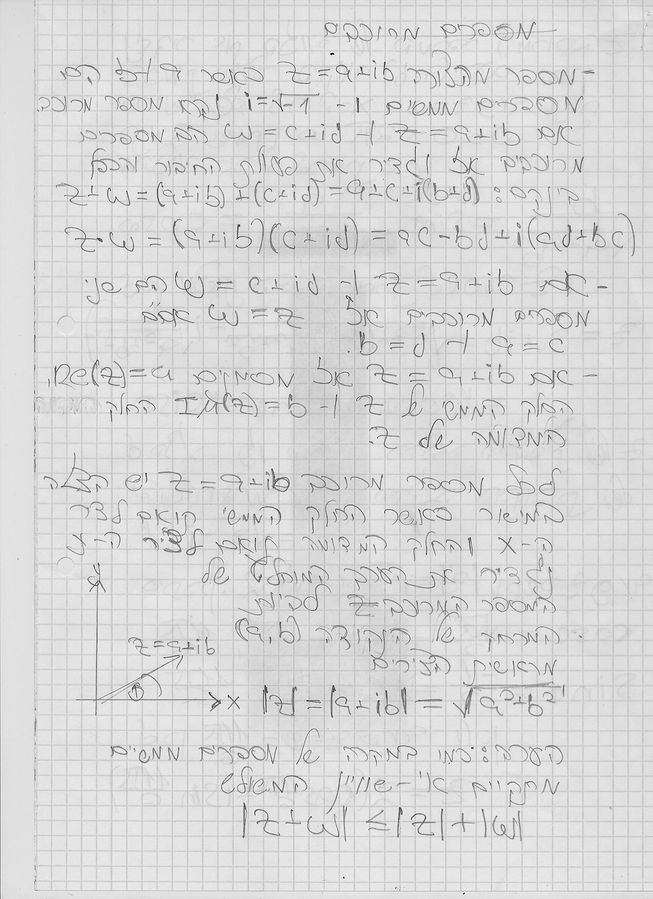 מספרים מרוכבים
- מספר מהצורה z=a+ib כאשר a ו-b הם
מספרים ממשים ו- i=√-1 נקרא מספר מרוכב
אם z=a+ib ו- w=c+id הם מספרים
מרוכבים אז נגדיר את פעולת החיבור והכפל
ביניהם: z+w=(a+ib)+(c+id)=a+c+i(b+d)
z·w=(a+ib)(c+id)=ac-bd+i(ad+bc)
- אם z=a+ib ו- w=c+id הם שני
מספרים מרוכבים אז z=w אםם
a=c ו- b=d.
- אם z=a+ib אז מסמנים Re(z)=a,
החלק הממשי של z ו- Im(z)=b החלק
המדומה של z.
לכל מספר מרוכב z=a+ib יש הצגה
במישור כאשר החלק הממשי קואם לציר
ה-x והחלק המדומה קואם לציר ה-y
נגדיר את הערך המוחלט של
המספר המרוכב z להיות
המרחק של הנקודה (a,b)
מראשית הצירים
y
z=a+ib
θ
x
|z|=|a+ib|=√a²+b²
הערה: כמו במקרה של מספרים ממשים
מתקיים אי-שוויון המשולש
|z+w|≤|z|+|w|